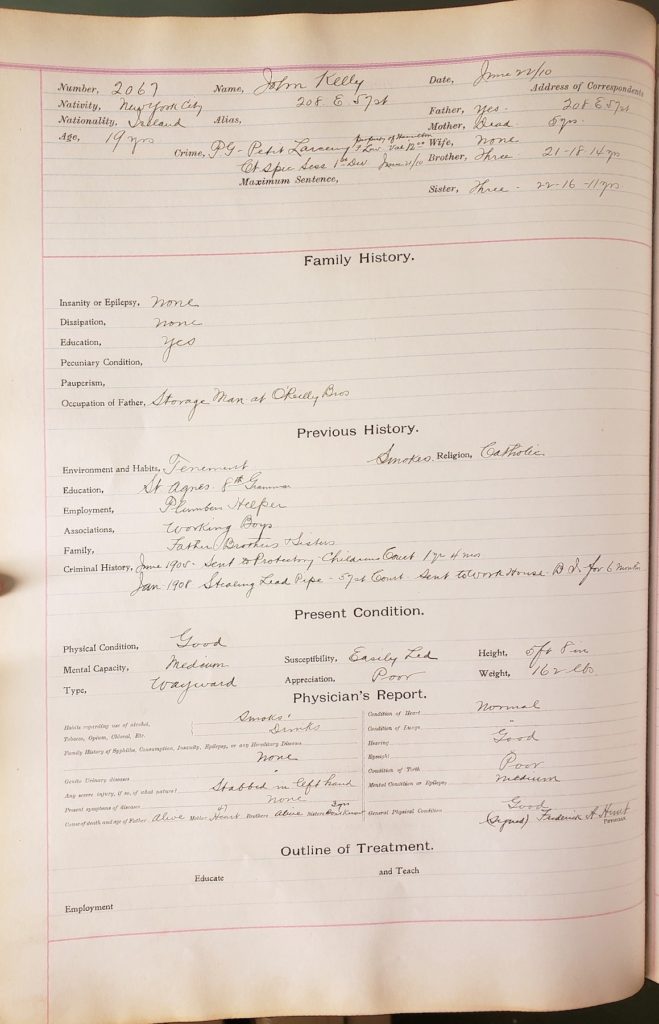 Number, 2067 Name, John Kelly Date, June 22/10
Nativity, New York City 208 E 57st Address of Correspondents
Nationality, Ireland Alias, Father, Yes. 208 E 57st
Age, 19 yrs Mother, Dead 5yrs.
Crime, PG- Petit Larceny property of Hamilton & Low Val 12.00 Wife, None
Ct Spec Sess 1st Div June 21/10 Brother, Three. 21-18-14 yrs
Maximum Sentence,
Sister, Three- 22-16-11 yrs
Family History.
Insanity or Epilepsy, None
Dissipation, None
Education, Yes
Pecuniary Condition,
Pauperism,
Occupation of Father, Storage Man at O'Reilly Bros
Previous History.
Environment and Habits, Tenement Smokes. Religion, Catholic
Education, St Agnes 8th Grammar
Employment, Plumbers Helper
Associations, Working Boys
Family, Father Brothers & Sisters
Criminal History, June Sent to Protectory Childrens Court 1 yr 4 mos
Jan 1908 Stealing Lead Pipe - 57st Court - Sent to Work House B I. for 6 months
Present Condition.
Physical Condition, Good
Mental Capacity, Medium Susceptibility, Easily Led Height, 5ft 8 in
Type, Wayward Appreciation, Poor Weight, 162 lbs
Physician's Report.
Habits regarding use of alcohol, Smoks' Condition of Heart Normal
Tobacco, Opium, Chloral, Etc. Drinks Condition of Lungs "
Family History of Syphilis, Consumption, Insanity, Epilepsy, or any Hereditary Disease Hearing Good
None Eyesight "
Genito Urinary diseases " Condition of Teeth Poor
Any severe injury, if so, of what nature? Stabbed in left hand Mental Condition or Epilepsy Medium
Present symptoms of diseases None
Cause of death and age of Father Alive Mother 47 Heart Brothers Alive Sisters 3 yrs General Physical Condition Good
(Signed) Frederick A Hunt
Physician
Outline of Treatment.
Educate and Teach
Employment